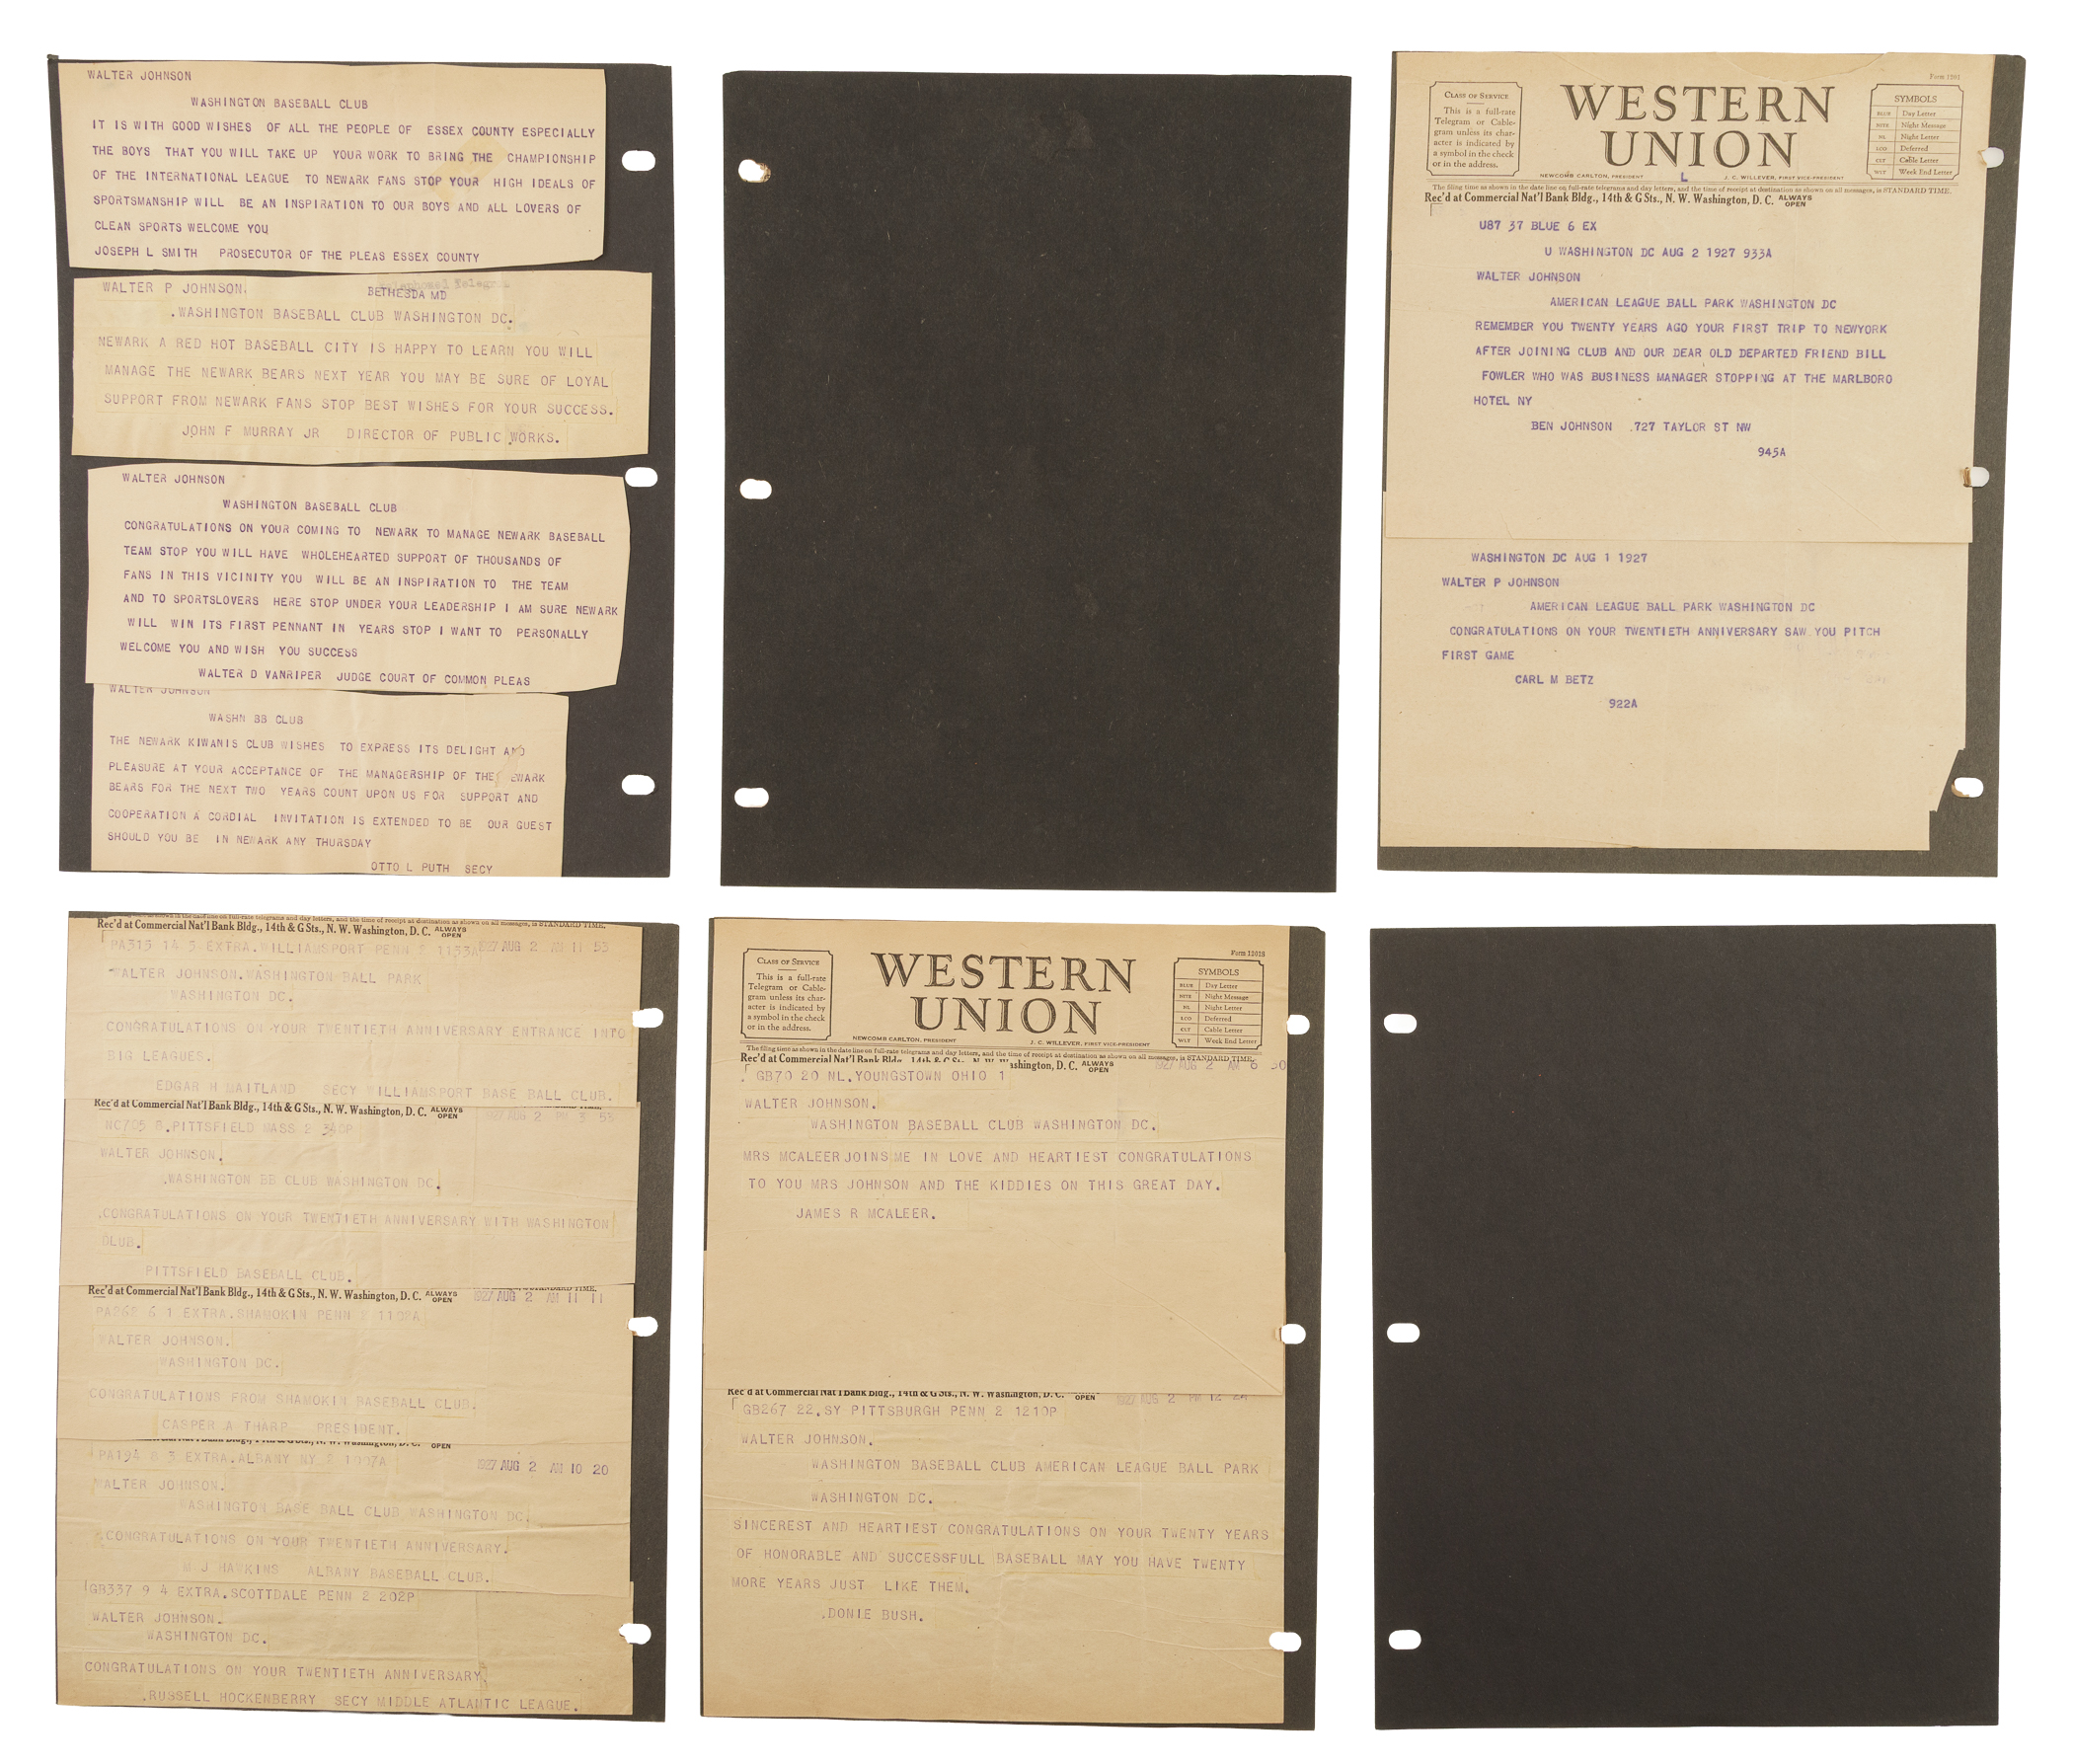 WALTER JOHNSON
WASHINGTON BASEBALL CLUB
IT IS WITH GOOD WISHES OF ALL THE PEOPLE OF ESSEX COUNTY ESPECIALLY
THE BOYS THAT YOU WILL TAKE UP YOUR WORK TO BRING THE CHAMPIONSHIP
OF THE INTERNATIONAL LEAGUE TO NEWARK FANS STOP YOUR HIGH IDEALS OF
SPORTSMANSHIP WILL BE AN INSPIRATION TO OUR BOYS AND ALL LOVERS OF
CLEAN SPORTS WELCOME YOU
JOSEPH L SMITH PROSECUTOR OF THE PLEAS ESSEX COUNTY
WALTER P JOHNSON.
BETHESDA MD
.WASHINGTON BASEBALL CLUB WASHINGTON DC.
NEWARK A RED HOT BASEBALL CITY IS HAPPY TO LEARN YOU WILL
MANAGE THE NEWARK BEARS NEXT YEAR YOU MAY BE SURE OF LOYAL
SUPPORT FROM NEWARK FANS STOP BEST WISHES FOR YOUR SUCCESS.
JOHN F MURRAY JR DIRECTOR OF PUBLIC WORKS.
WALTER JOHNSON
WASHINGTON BASEBALL CLUB
CONGRATULATIONS ON YOUR COMING TO NEWARK TO MANAGE NEWARK BASEBALL
TEAM STOP YOU WILL HAVE WHOLEHEARTED SUPPORT OF THOUSANDS OF
FANS IN THIS VICINITY YOU WILL BE AN INSPIRATION TO THE TEAM
AND TO SPORTSLOVERS HERE STOP UNDER YOUR LEADERSHIP I AM SURE NEWARK
WILL WIN ITS FIRST PENNANT IN YEARS STOP I WANT TO PERSONALLY
WELCOME YOU AND WISH YOU SUCCESS
WALTER D VANRIPER JUDGE COURT OF COMMON PLEAS
WALTER JOHNSON
WASHN BB CLUB
THE NEWARK KIWANIS CLUB WISHES TO EXPRESS ITS DELIGHT AND
PLEASURE AT YOUR ACCEPTANCE OF THE MANAGERSHIP OF THE EWARK
BEARS FOR THE NEXT TWO YEARS COUNT UPON US FOR SUPPORT AND
COOPERATION A CORDIAL INVITATION IS EXTENDED TO BE OUR GUEST
SHOULD YOU BE IN NEWARK ANY THURSDAY
OTTO L PUTH SECY
Form 1201
CLASS OF SERVICE
This is a full-rate
Telegram or Cable-
gram unless its char-
acter is indicated by
a symbol in the check
or in the address.
WESTERN
UNION
NEWCOMB CARLTON, PRESIDENT
J. C. WILLEVER, FIRST VICE-PRESIDENT
SYMBOLS
BLUE Day Letter
NITE Night Message
NL Night Letter
LCO Deferred
CLT Cable Letter
WLT Week End Letter
The filing time as shown in the date line on full-rate telegrams and day letters, and the time of receipt at destination as shown on all messages, is STANDARD TIME.
Rec'd at Commercial Nat'l Bank Bldg., 14th & G Sts., N. W. Washington, D. C. ALWAYS OPEN
U87 37 BLUE 6 EX
U WASHINGTON DC AUG 2 1927 933A
WALTER JOHNSON
AMERICAN LEAGUE BALL PARK WASHINGTON DC
REMEMBER YOU TWENTY YEARS AGO YOUR FIRST TRIP TO NEWYORK
AFTER JOINING CLUB AND OUR DEAR OLD DEPARTED FRIEND BILL
FOWLER WHO WAS BUSINESS MANAGER STOPPING AT THE MARLBORO
HOTEL NY
BEN JOHNSON .727 TAYLOR ST NW
945A
WASHINGTON DC AUG 1 1927
WALTER P JOHNSON
AMERICAN LEAGUE BALL PARK WASHINGTON DC
CONGRATULATIONS ON YOUR TWENTIETH ANNIVERSARY SAW YOU PITCH
FIRST GAME
CARL M BETZ
922A
Rec'd at Commercial Nat'l Bank Bldg., 14th & G Sts., N. W. Washington, D. C. ALWAYS OPEN
PA315 14 3 EXTRA.WILLIAMSPORT PENN 2 1133A 1927 AUG 2 AM 11 53
WALTER JOHNSON.WASHINGTON BALL PARK
WASHINGTON DC.
CONGRATULATIONS ON YOUR TWENTIETH ANNIVERSARY ENTRANCE INTO
BIG LEAGUES.
EDGAR H MAITLAND SECY WILLIAMSPORT BASE BALL CLUB.
Rec'd at Commercial Nat'l Bank Bldg., 14th & G Sts., N. W. Washington, D. C. ALWAYS OPEN
NC705 8.PITTSFIELD MASS 2 340P 1927 AUG 2 PM 3 53
WALTER JOHNSON.
.WASHINGTON BB CLUB WASHINGTON DC.
.CONGRATULATIONS ON YOUR TWENTIETH ANNIVERSARY WITH WASHINGTON
CLUB.
PITTSFIELD BASEBALL CLUB.
Rec'd at Commercial Nat'l Bank Bldg., 14th & G Sts., N. W. Washington, D. C. ALWAYS OPEN
1927 AUG 2 AM 11 11
PA262 6 1 EXTRA.SHAMOKIN PENN 2 1102A
WALTER JOHNSON.
WASHINGTON DC.
CONGRATULATIONS FROM SHAMOKIN BASEBALL CLUB.
CASPER A THARP PRESIDENT.
OPEN
PA194 8 3 EXTRA.ALBANY NY 2 1007A 1927 AUG 2 AM 10 20
WALTER JOHNSON.
WASHINGTON BASE BALL CLUB WASHINGTON DC.
CONGRATULATIONS ON YOUR TWENTIETH ANNIVERSARY.
M J HAWKINS ALBANY BASEBALL CLUB.
GB337 9 4 EXTRA.SCOTTDALE PENN 2 202P
WALTER JOHNSON.
WASHINGTON DC.
CONGRATULATIONS ON YOUR TWENTIETH ANNIVERSARY.
.RUSSELL HOCKENBERRY SECY MIDDLE ATLANTIC LEAGUE.
Form 1201S
CLASS OF SERVICE
This is a full-rate
Telegram or Cable-
gram unless its char-
acter is indicated by
a symbol in the check
or in the address.
WESTERN
UNION
NEWCOMB CARLTON, PRESIDENT
J. C. WILLEVER, FIRST VICE-PRESIDENT
SYMBOLS
BLUE Day Letter
NITE Night Message
NL Night Letter
LCO Deferred
CLT Cable Letter
WLT Week End Letter
The filing time as shown in the date line on full-rate telegrams and day letters, and the time of receipt at destination as shown on all messages, is STANDARD TIME.
Rec'd at Commercial Nat'l Bank Bldg., 14th & G Sts., N. W. Washington, D. C. ALWAYS OPEN
1927 AUG 2 AM 6 30
. GB70 20 NL.YOUNGSTOWN OHIO 1
WALTER JOHNSON.
WASHINGTON BASEBALL CLUB WASHINGTON DC.
MRS MCALEER JOINS ME IN LOVE AND HEARTIEST CONGRATULATIONS
TO YOU MRS JOHNSON AND THE KIDDIES ON THIS GREAT DAY.
JAMES R MCALEER.
Rec'd at Commercial Nat'l Bank Bldg., 14th & G Sts., N. W. Washington, D. C. OPEN
1927 AUG 2 PM 12
GB267 22.SY PITTSBURGH PENN 2 1210P
WALTER JOHNSON.
WASHINGTON BASEBALL CLUB AMERICAN LEAGUE BALL PARK
WASHINGTON DC.
SINCEREST AND HEARTIEST CONGRATULATIONS ON YOUR TWENTY YEARS
OF HONORABLE AND SUCCESSFULL BASEBALL MAY YOU HAVE TWENTY
MORE YEARS JUST LIKE THEM.
.DONIE BUSH.